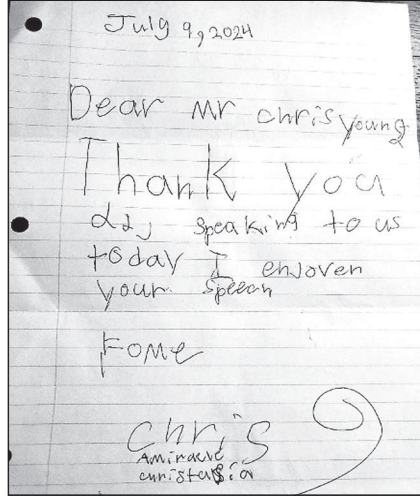 July 9, 2024
Dear Mr chris young
Thank you
speaking to us
today I enJoven
your speech
Fome
chris
Amiracle